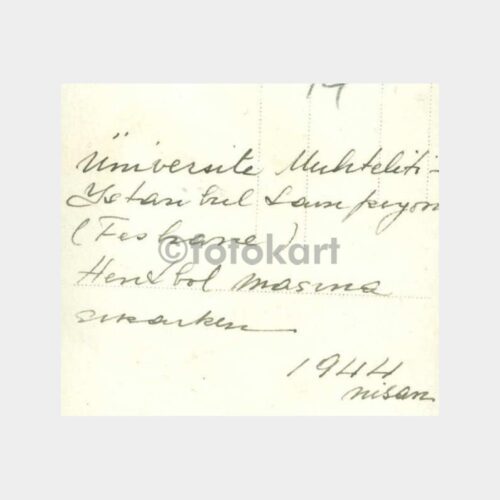 14
Üniversite Muhteliti-
İstanbul Şampiyon
(Feshane)
©fotokart
Hendbol maçına
çıkarken
1944
nisan